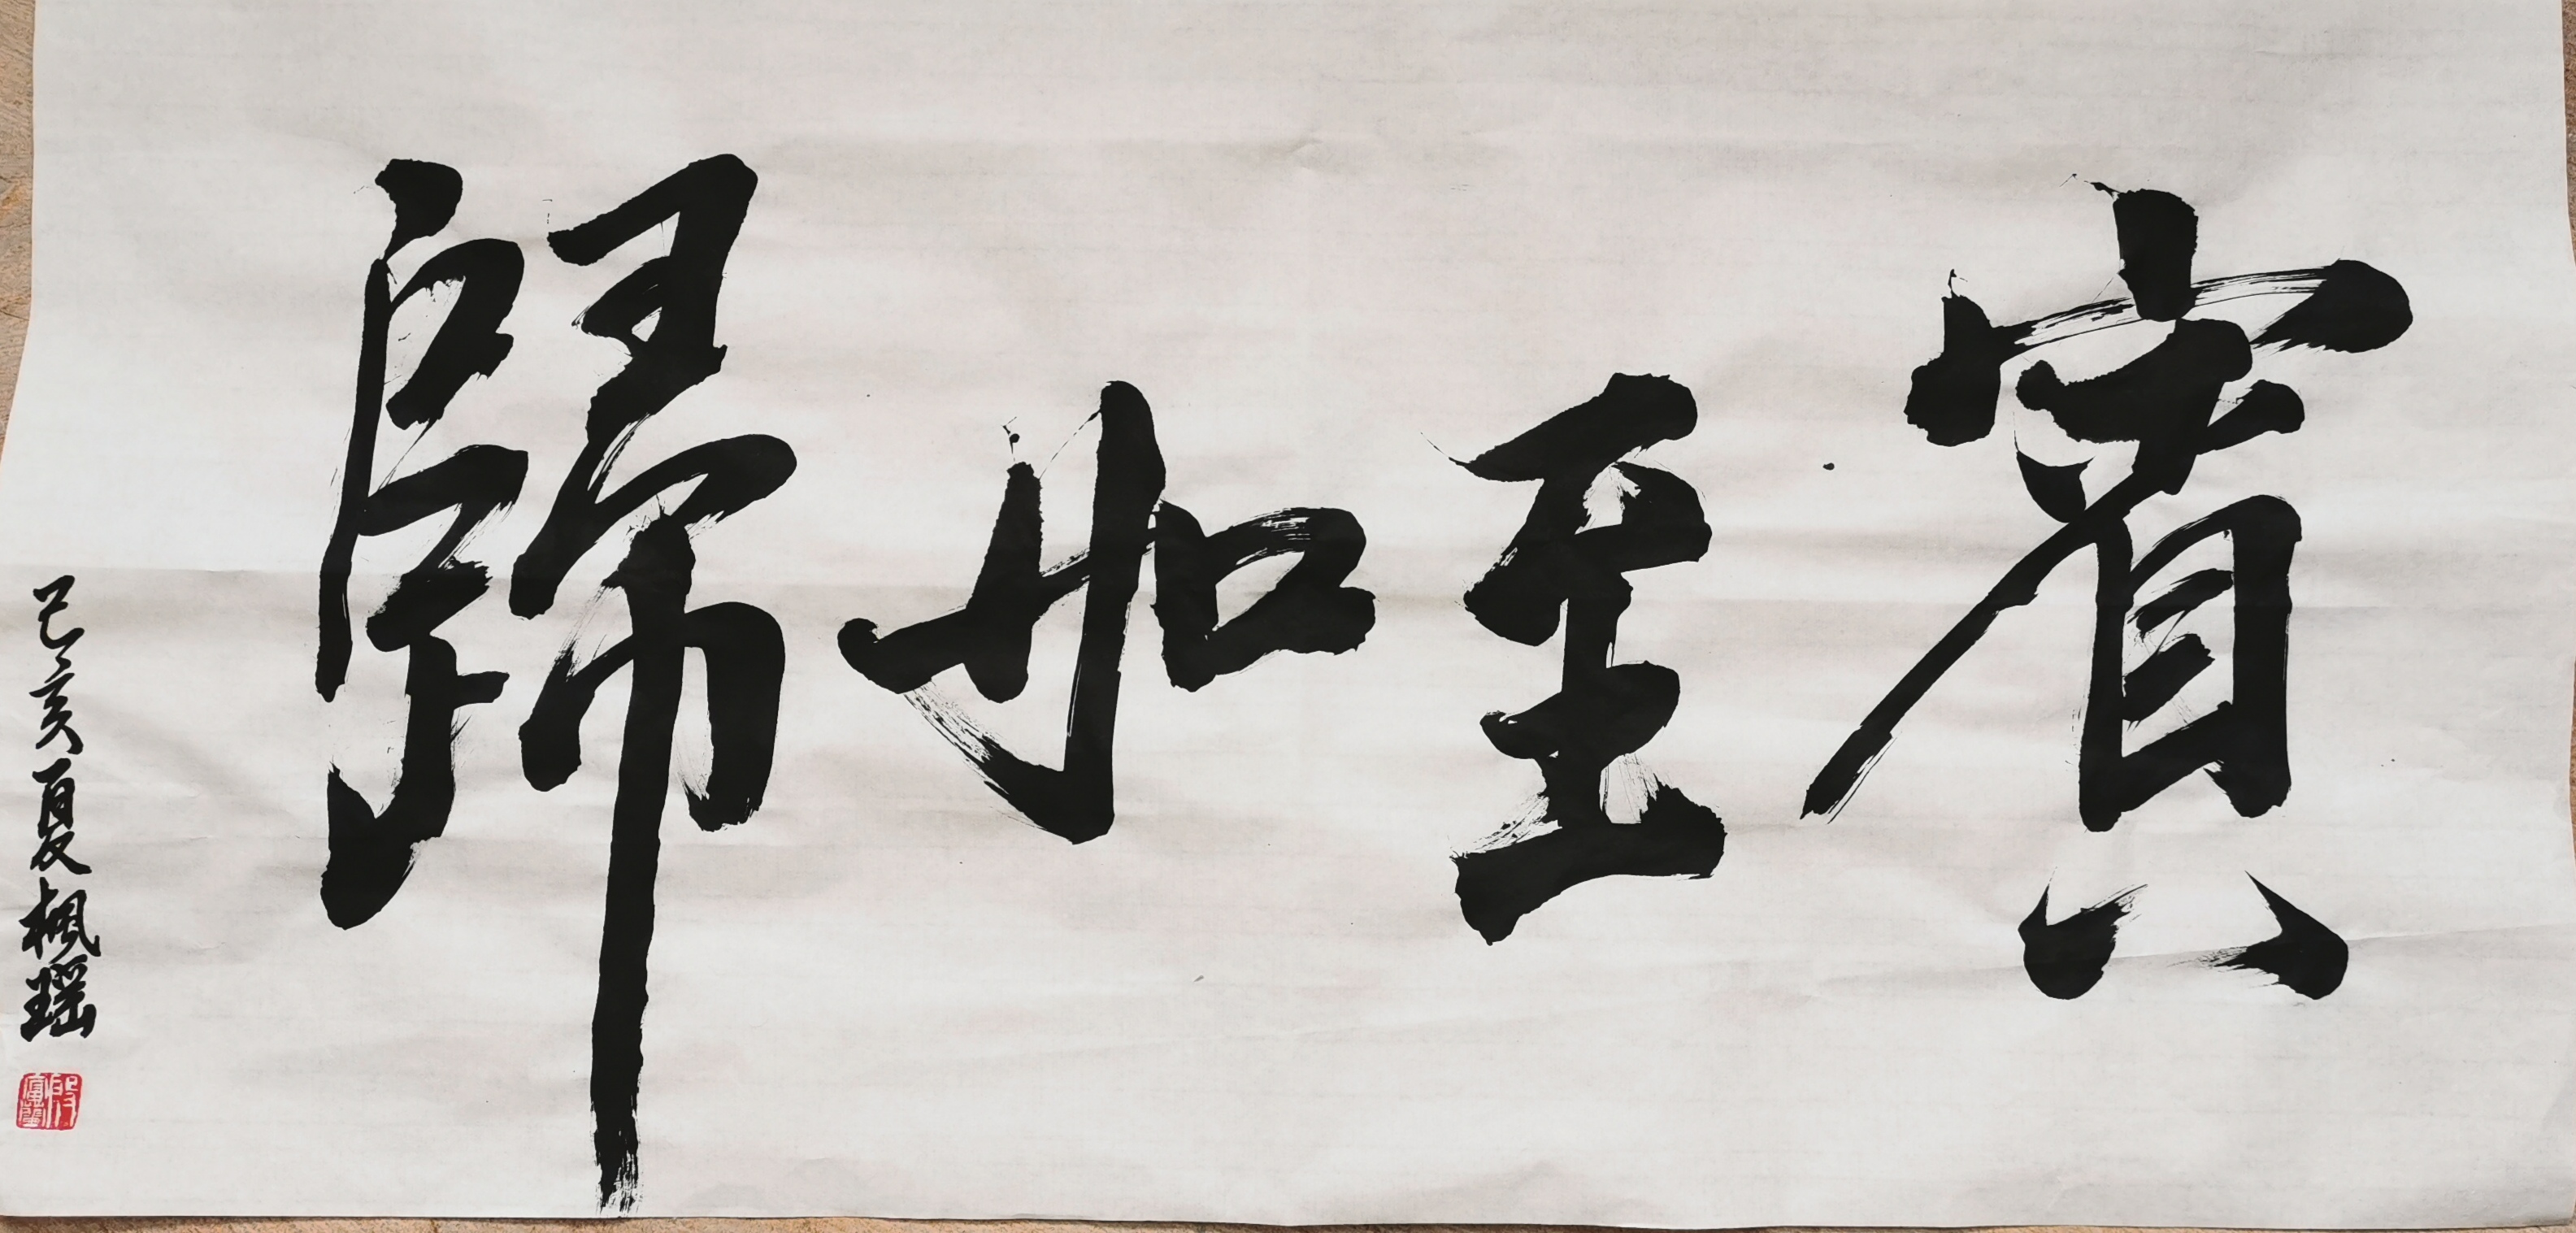 賓至如歸
己亥夏楓瑶